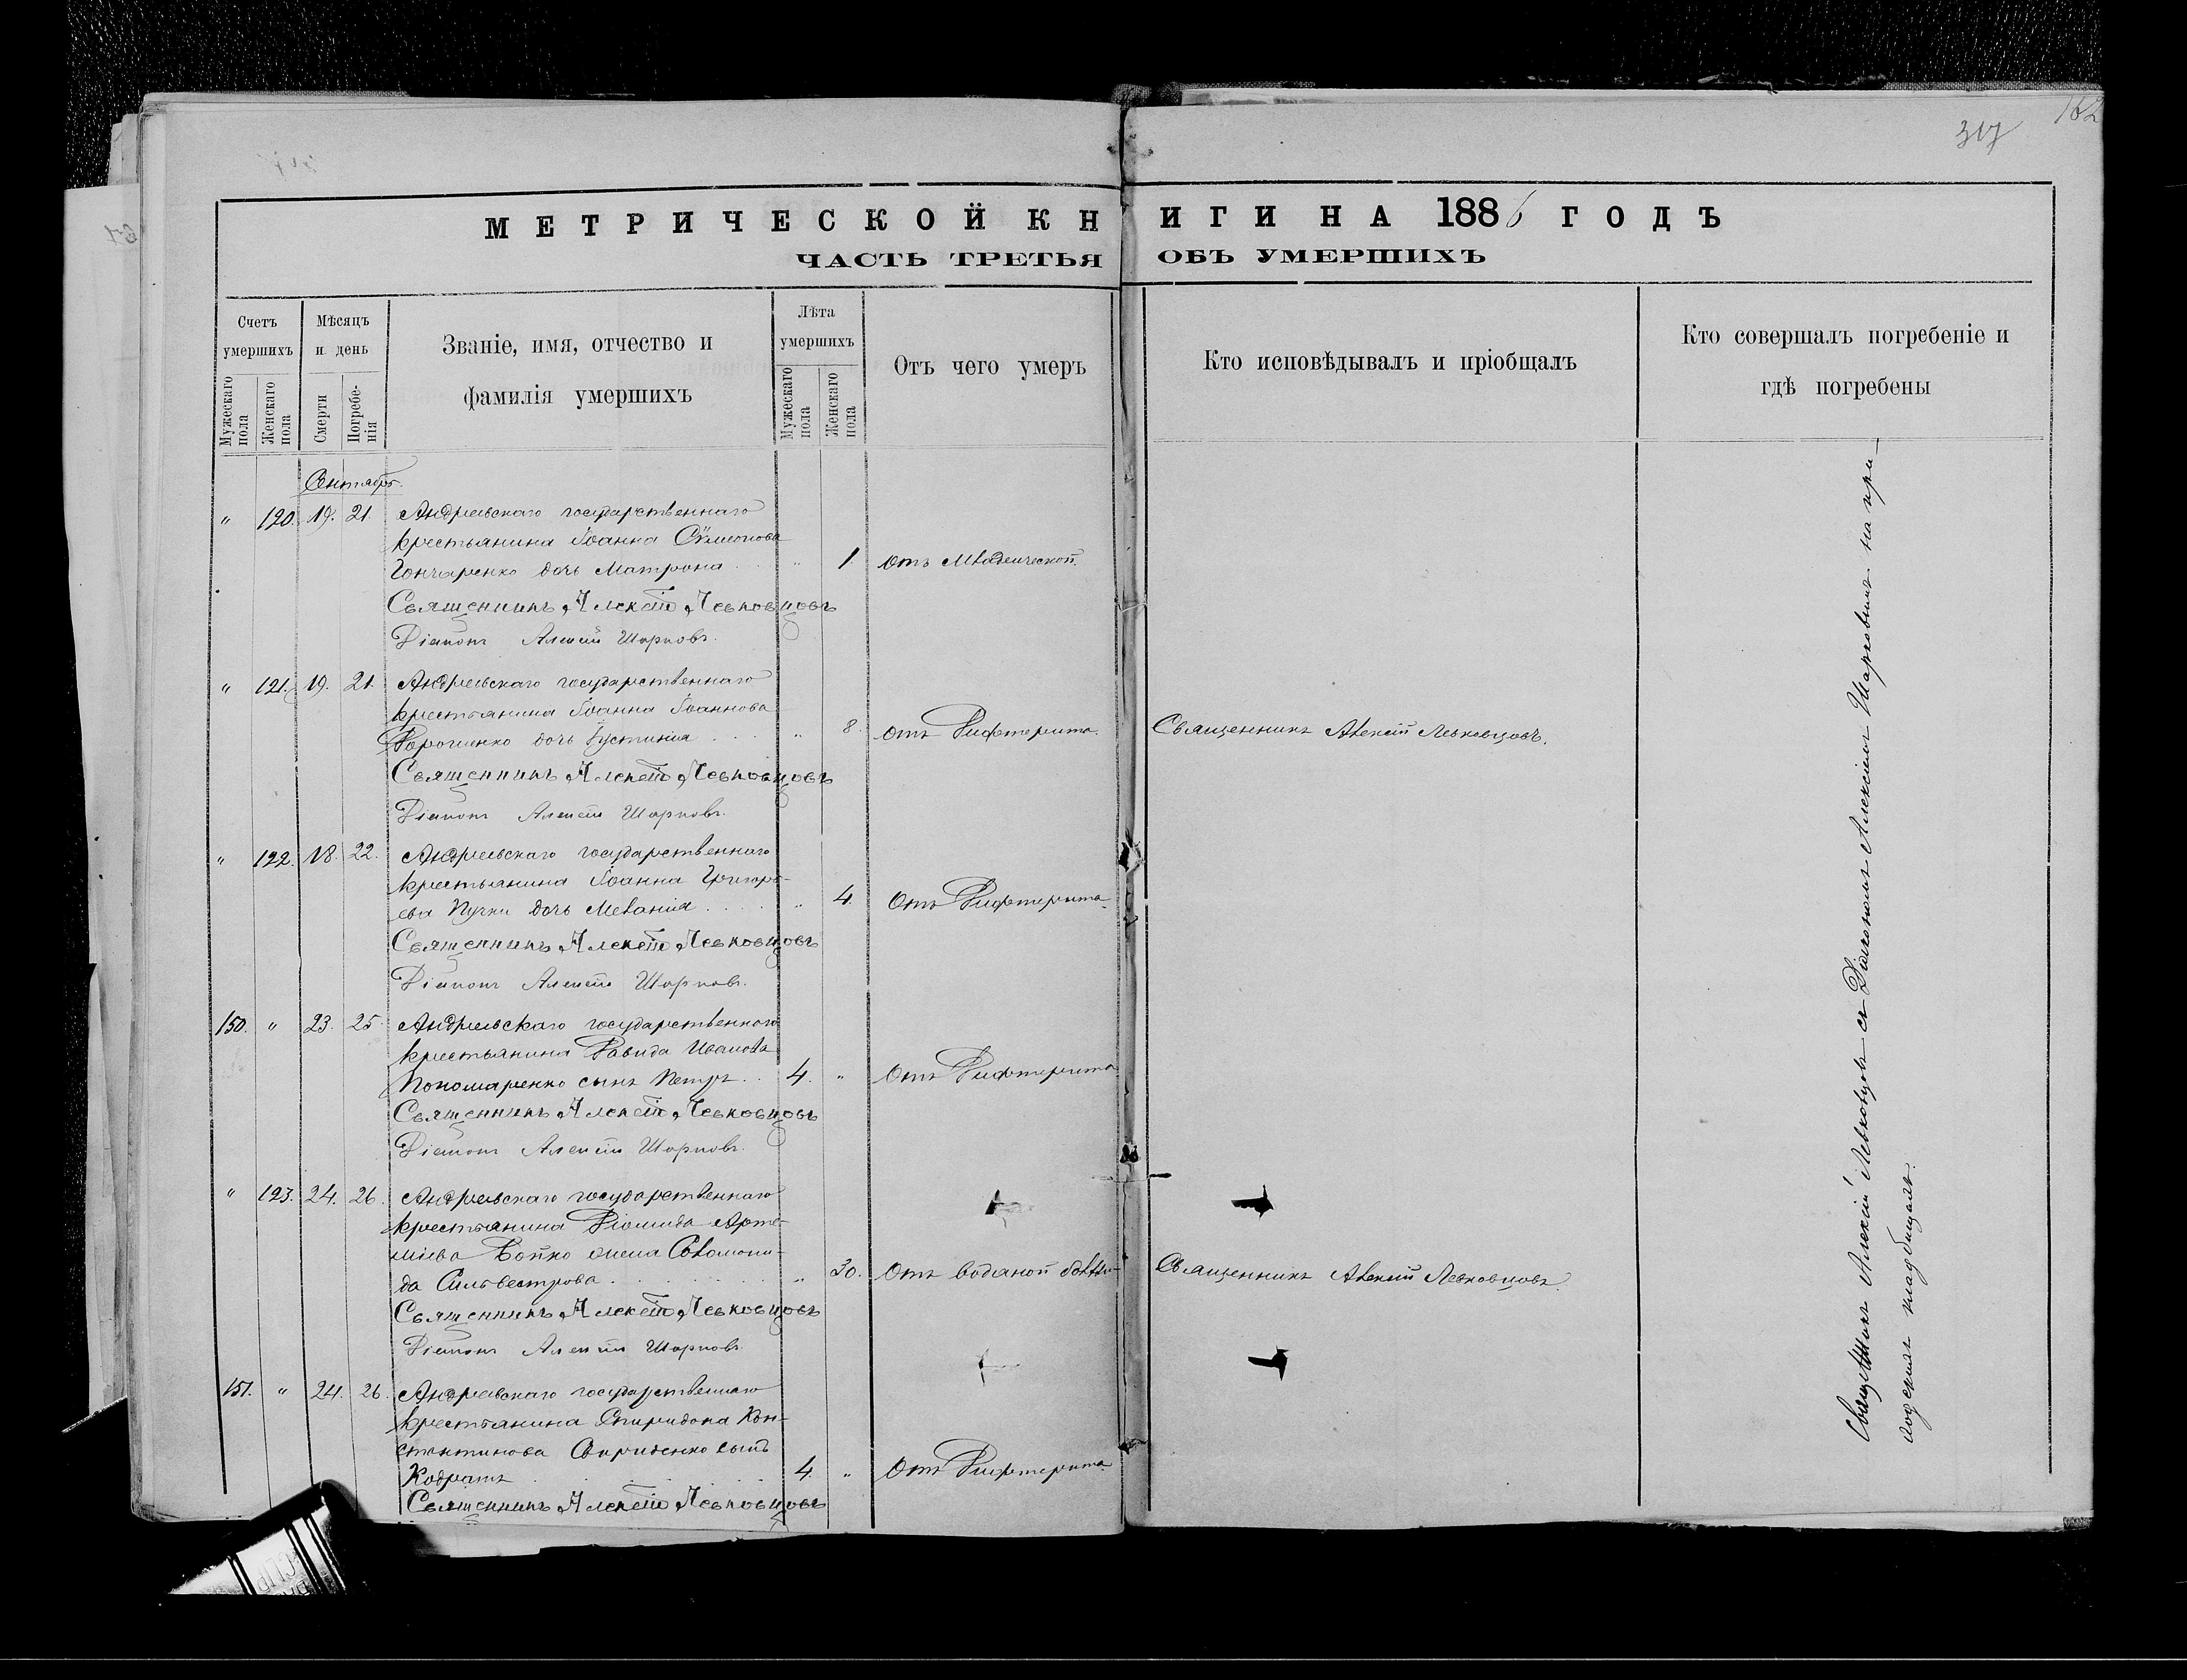 317
162
МЕТРИЧЕСКОЙ КНИГИ НА 1886 ГОДЪ
ЧАСТЬ ТРЕТЬЯ ОБЪ УМЕРШИХЪ
Счетъ умершихъ
Мужескаго пола
Женскаго пола
Мѣсяцъ и день
Смерти
Погребенія
Званіе, имя, отчество и
фамилія умершихъ
Лѣта умершихъ
Мужескаго пола
Женскаго пола
Отъ чего умеръ
Кто исповѣдывалъ и пріобщалъ
Кто совершалъ погребеніе и
гдѣ погребены
Сентябрь.
" 120. 19. 21. Андреевскаго государственнаго
крестьянина Іоанна Сѵмеонова
Гончаренко дочь Матрона . . " 1 отъ Младенческой.
Священникъ Алексій Левковцовъ
Діаконъ Алексій Шарковъ.
" 121. 19. 21. Андреевскаго государственнаго
крестьянина Іоанна Іоаннова
дочь Іустинія . . . " 8. отъ Дифтерита. Священникъ Алексій Левковцовъ.
Священникъ Алексій Левковцовъ
Діаконъ Алексій Шарковъ.
" 122. 18. 22. Андреевскаго государственнаго
крестьянина Іоанна Григорі-
ева Пучки дочь Меланія . . . . " 4. Отъ Дифтерита.
Священникъ Алексій Левковцовъ
Діаконъ Алексій Шарковъ.
150. " 23. 25. Андреевскаго государственнаго
крестьянина Давида Иванова
Пономаренко сынъ Петръ . . 4. " Отъ Дифтерита
Священникъ Алексій Левковцовъ
Діаконъ Алексій Шарковъ.
" 123. 24. 26. Андреевскаго государственнаго
крестьянина Діомида Арте-
міева Бойко жена Соломони-
да Сильвестрова . . . . . . . " 30. Отъ водяной Священникъ Алексій Левковцовъ.
Священникъ Алексій Левковцовъ
Діаконъ Алексій Шарковъ.
151. " 24. 26. Андреевскаго государственнаго
крестьянина Спиридона Кон-
стантинова сынъ
Кодратъ . . . . . 4. " Отъ Дифтерита.
Священникъ Алексій Левковцовъ
Священникъ Алексій Левковцовъ съ Діакономъ Алексіемъ Шарковымъ на при-
ходскомъ кладбищѣ.